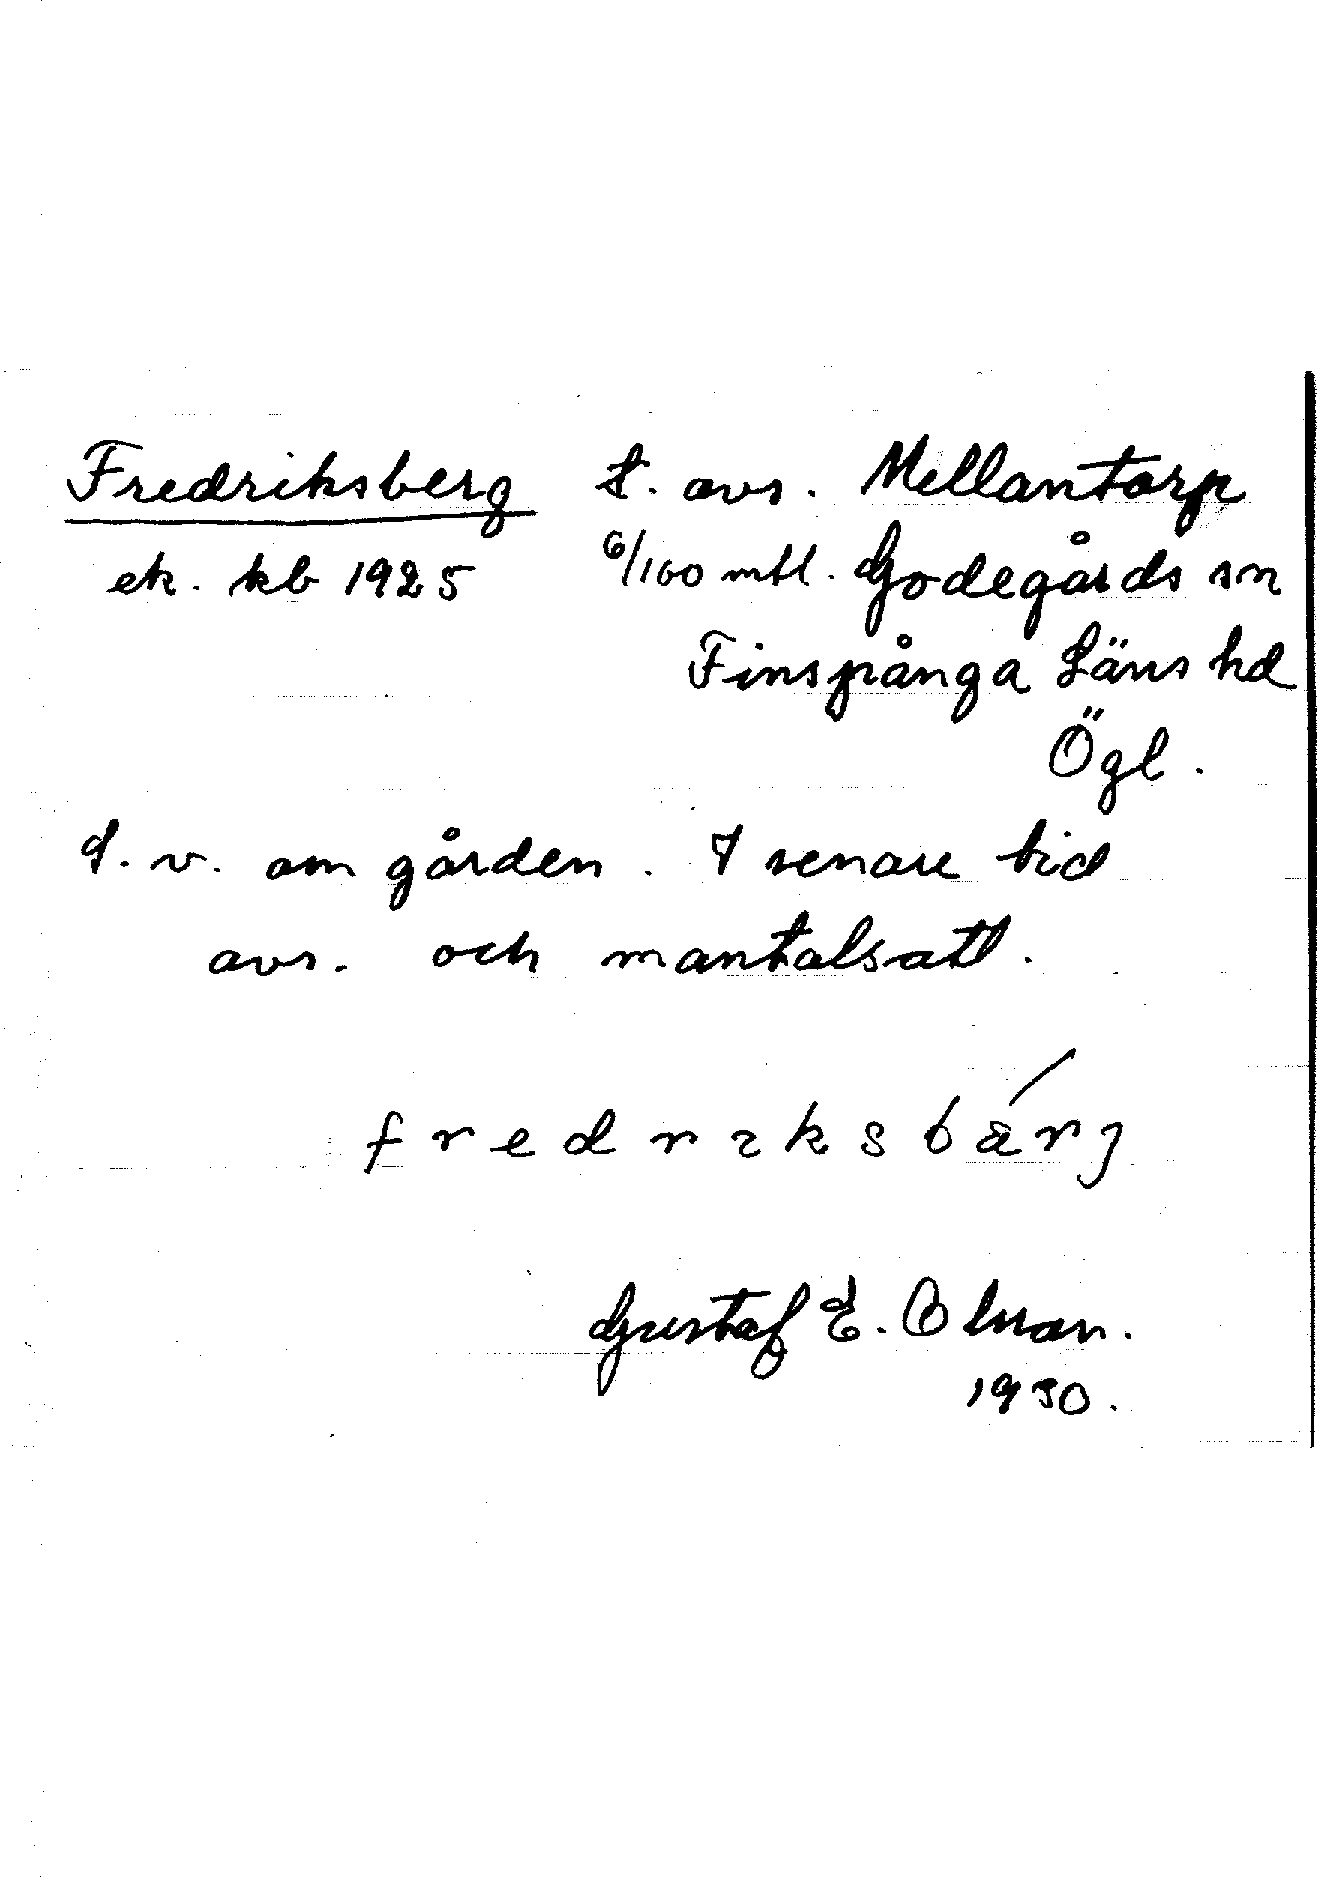 Fredriksberg t. avs. Mellantorp
ek. kb 1925 6/100 mtl. Godegårds sn
Finspånga Läns hd
Ögl.
S. v. om gården. I senare tid
avs. och mantalsatt.
fredrıksbärj
Gustaf E. Olman.
1930.